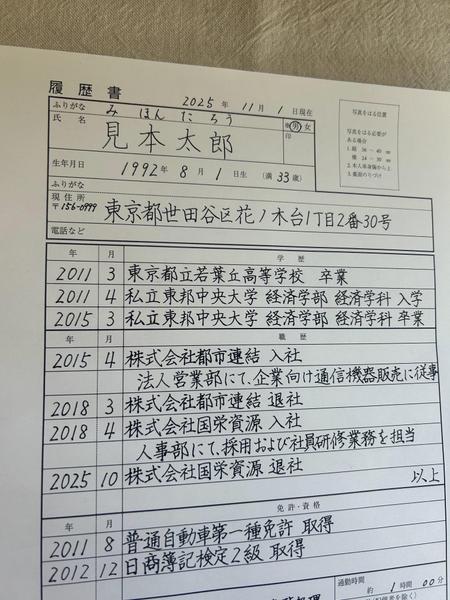 履歴書
2025 年 11 月 1 日現在
ふりがな み ほん た ろう
氏 名 見本太郎
印 男 女
写真をはる位置
写真をはる必要が
ある場合
1. 縦 36～40 mm
横 24～30 mm
2. 本人単身胸から上
3. 裏面のりづけ
生年月日 1992 年 8 月 1 日生 (満 33 歳)
ふりがな
現 住 所
〒156-0999 東京都世田谷区花ノ木台1丁目2番30号
電話など
年 月 学 歴
2011 3 東京都立若葉丘高等学校 卒業
2011 4 私立東邦中央大学 経済学部 経済学科 入学
2015 3 私立東邦中央大学 経済学部 経済学科 卒業
年 月 職 歴
2015 4 株式会社都市連結 入社
法人営業部にて、企業向け通信機器販売に従事
2018 3 株式会社都市連結 退社
2018 4 株式会社国栄資源 入社
人事部にて、採用および社員研修業務を担当
2025 10 株式会社国栄資源 退社
以上
年 月 免 許 ・ 資 格
2011 8 普通自動車第一種免許 取得
2012 12 日商簿記検定2級 取得
通勤時間
約 1 時間 00 分